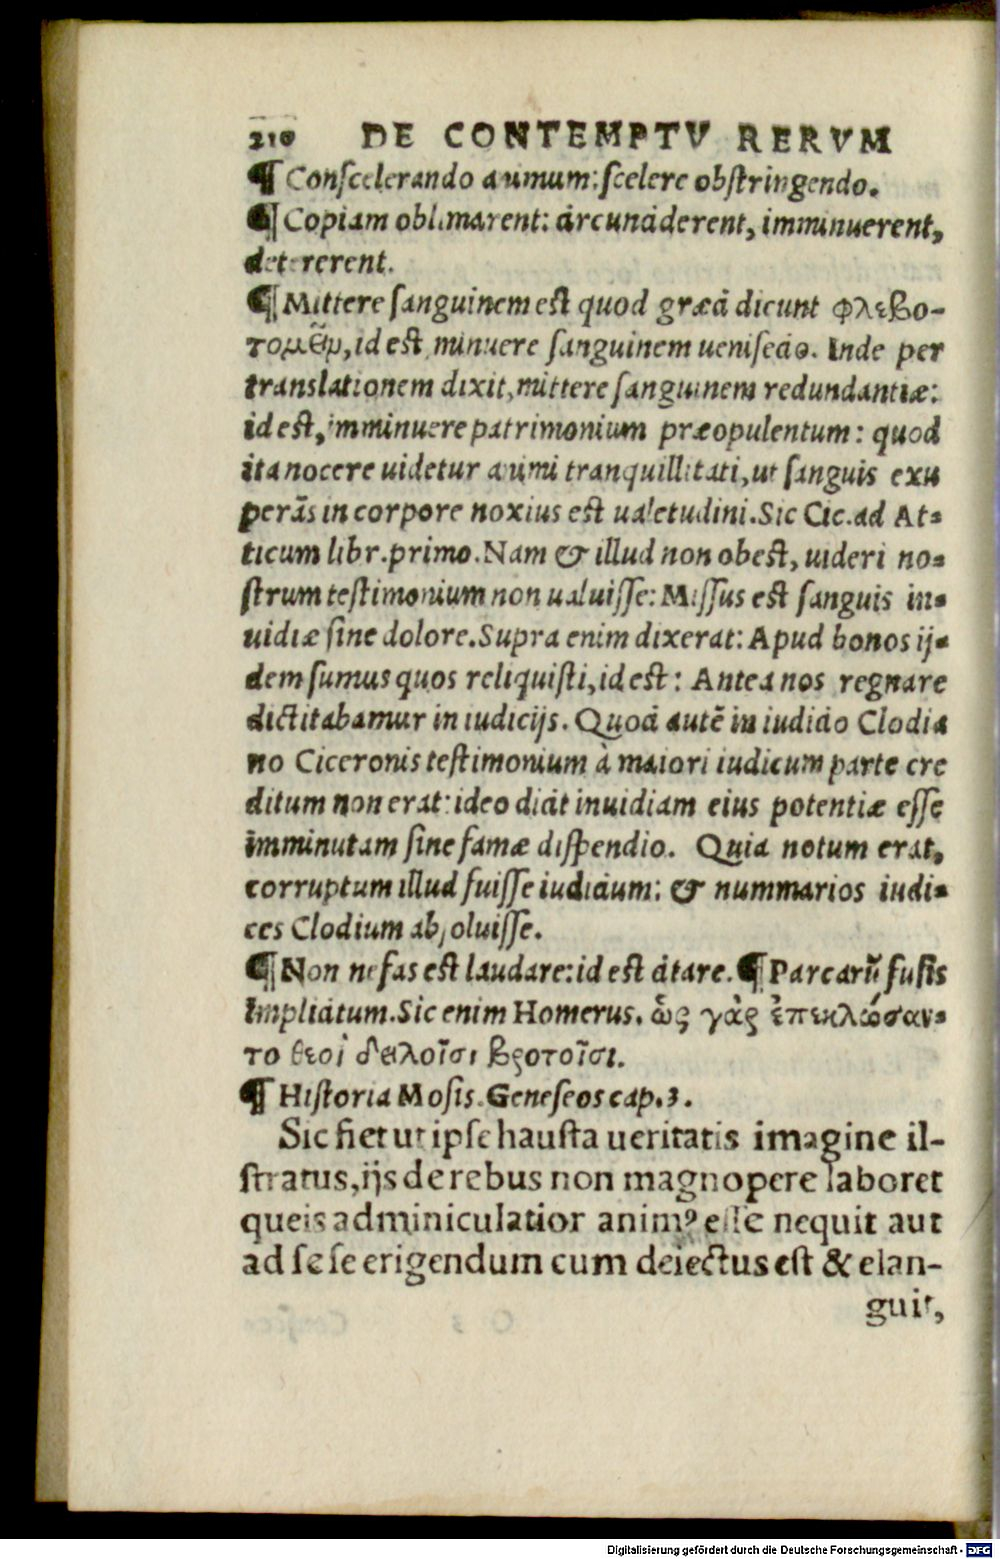 210 DE CONTEMPTV RERVM
¶ Conscelerando animum: scelere obstringendo.
¶ Copiam oblimarent: circunciderent, imminuerent,
detererent.
¶ Mittere sanguinem est quod græci dicunt φλεβο-
τομεῖν, id est minuere sanguinem ueni sectio. Inde per
translationem dixit, mittere sanguinem redundantiæ:
id est, imminuere patrimonium præopulentum: quod
ita nocere uidetur animi tranquillitati, ut sanguis exu
perãs in corpore noxius est ualetudini. Sic Cic. ad At-
ticum libr. primo. Nam & illud non obest, uideri no-
strum testimonium non ualuisse: Missus est sanguis in-
uidiæ sine dolore. Supra enim dixerat: Apud bonos ij-
dem sumus quos reliquisti, id est: Antea nos regnare
dictitabamur in iudicijs. Quod autẽ in iudicio Clodia
no Ciceronis testimonium à maiori iudicum parte cre
ditum non erat: ideo dicit inuidiam eius potentiæ esse
imminutam sine famæ dispendio. Quia notum erat,
corruptum illud fuisse iudicium: & nummarios iudi-
ces Clodium absoluisse.
¶ Non nefas est laudare: id est citare. ¶ Parcarũ fusis
implicitum. Sic enim Homerus. ὣς γὰρ ἐπεκλώσαν-
το θεοὶ δειλοῖσι βροτοῖσι.
¶ Historia Mosis. Geneseos cap. 3.
Sic fiet ut ipse hausta ueritatis imagine il-
stratus, ijs de rebus non magnopere laboret
queis adminiculatior animꝰ esse nequit aut
ad sese erigendum cum deiectus est & elan-
guit,
Digitalisierung gefördert durch die Deutsche Forschungsgemeinschaft - DFG